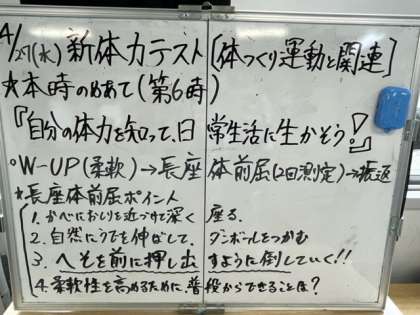 4/27(水) 新体力テスト[体つくり運動と関連]
☆本時のめあて(第6時)
『自分の体力を知って、日常生活に生かそう!』
○W-UP(柔軟)→長座体前屈(2回測定)→振返
*長座体前屈ポイント
1. かべにおしりを近づけて深く座る.
2. 自然にうでを伸ばして、ダンボールをつかむ
3. へそを前に押し出すように倒していく!!
4. 柔軟性を高めるために、普段からできることは?